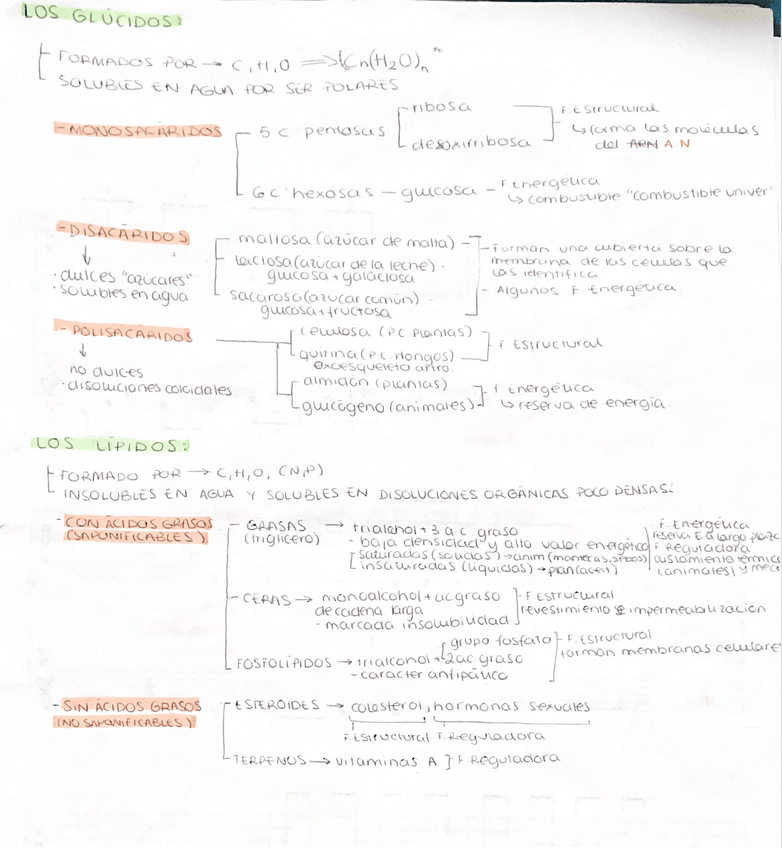 LOS GLÚCIDOS:
FORMADOS POR → C, H, O ⇒ Cn(H2O)n
SOLUBLES EN AGUA POR SER POLARES
- MONOSACÁRIDOS
5 C pentosas
ribosa
desoxirribosa
F. Estructural
↳ forma las moléculas
del ARN A N
6 C: hexosas – glucosa – F Energética
↳ combustible "combustible univer"
- DISACÁRIDOS
↓
· dulces "azúcares"
· solubles en agua
maltosa (azúcar de malta)
lactosa (azúcar de la leche).
glucosa + galactosa
sacarosa (azúcar común)
glucosa + fructosa
- Forman una cubierta sobre la
membrana de las células que
las identifica
- Algunos F Energética.
- POLISACÁRIDOS
↓
no dulces
· disoluciones coloidales
celulosa (PC Plantas)
quitina (P.C. Hongos)
exoesqueleto artro.
F Estructural
almidón (plantas)
glucógeno (animales)
F Energética
↳ reserva de energía.
LOS LÍPIDOS:
FORMADO POR → C, H, O, (N, P)
INSOLUBLES EN AGUA Y SOLUBLES EN DISOLUCIONES ORGÁNICAS POCO DENSAS:
- CON ÁCIDOS GRASOS
(SAPONIFICABLES)
- GRASAS → trialcohol + 3 ac. graso
(triglicero)
- baja densidad y alto valor energético
saturadas (sólidas) → anim (mantecas, sebos)
insaturadas (líquidas) → plan (aceit)
F. Energética
reserva E a largo plazo
F Reguladora
aislamiento térmico
(animales) y mecá
- CERAS → monoalcohol + ac graso
de cadena larga
· marcada insolubilidad
F. Estructural
revestimiento e impermeabilización
FOSFOLÍPIDOS → trialcohol + 2 ac graso
grupo fosfato
- caracter antipático
F. Estructural
forman membranas celulare
- SIN ÁCIDOS GRASOS
(NO SAPONIFICABLES)
ESTEROIDES → colesterol, hormonas sexuales
F. Estructural F. Reguladora
TERPENOS → vitaminas A } F Reguladora